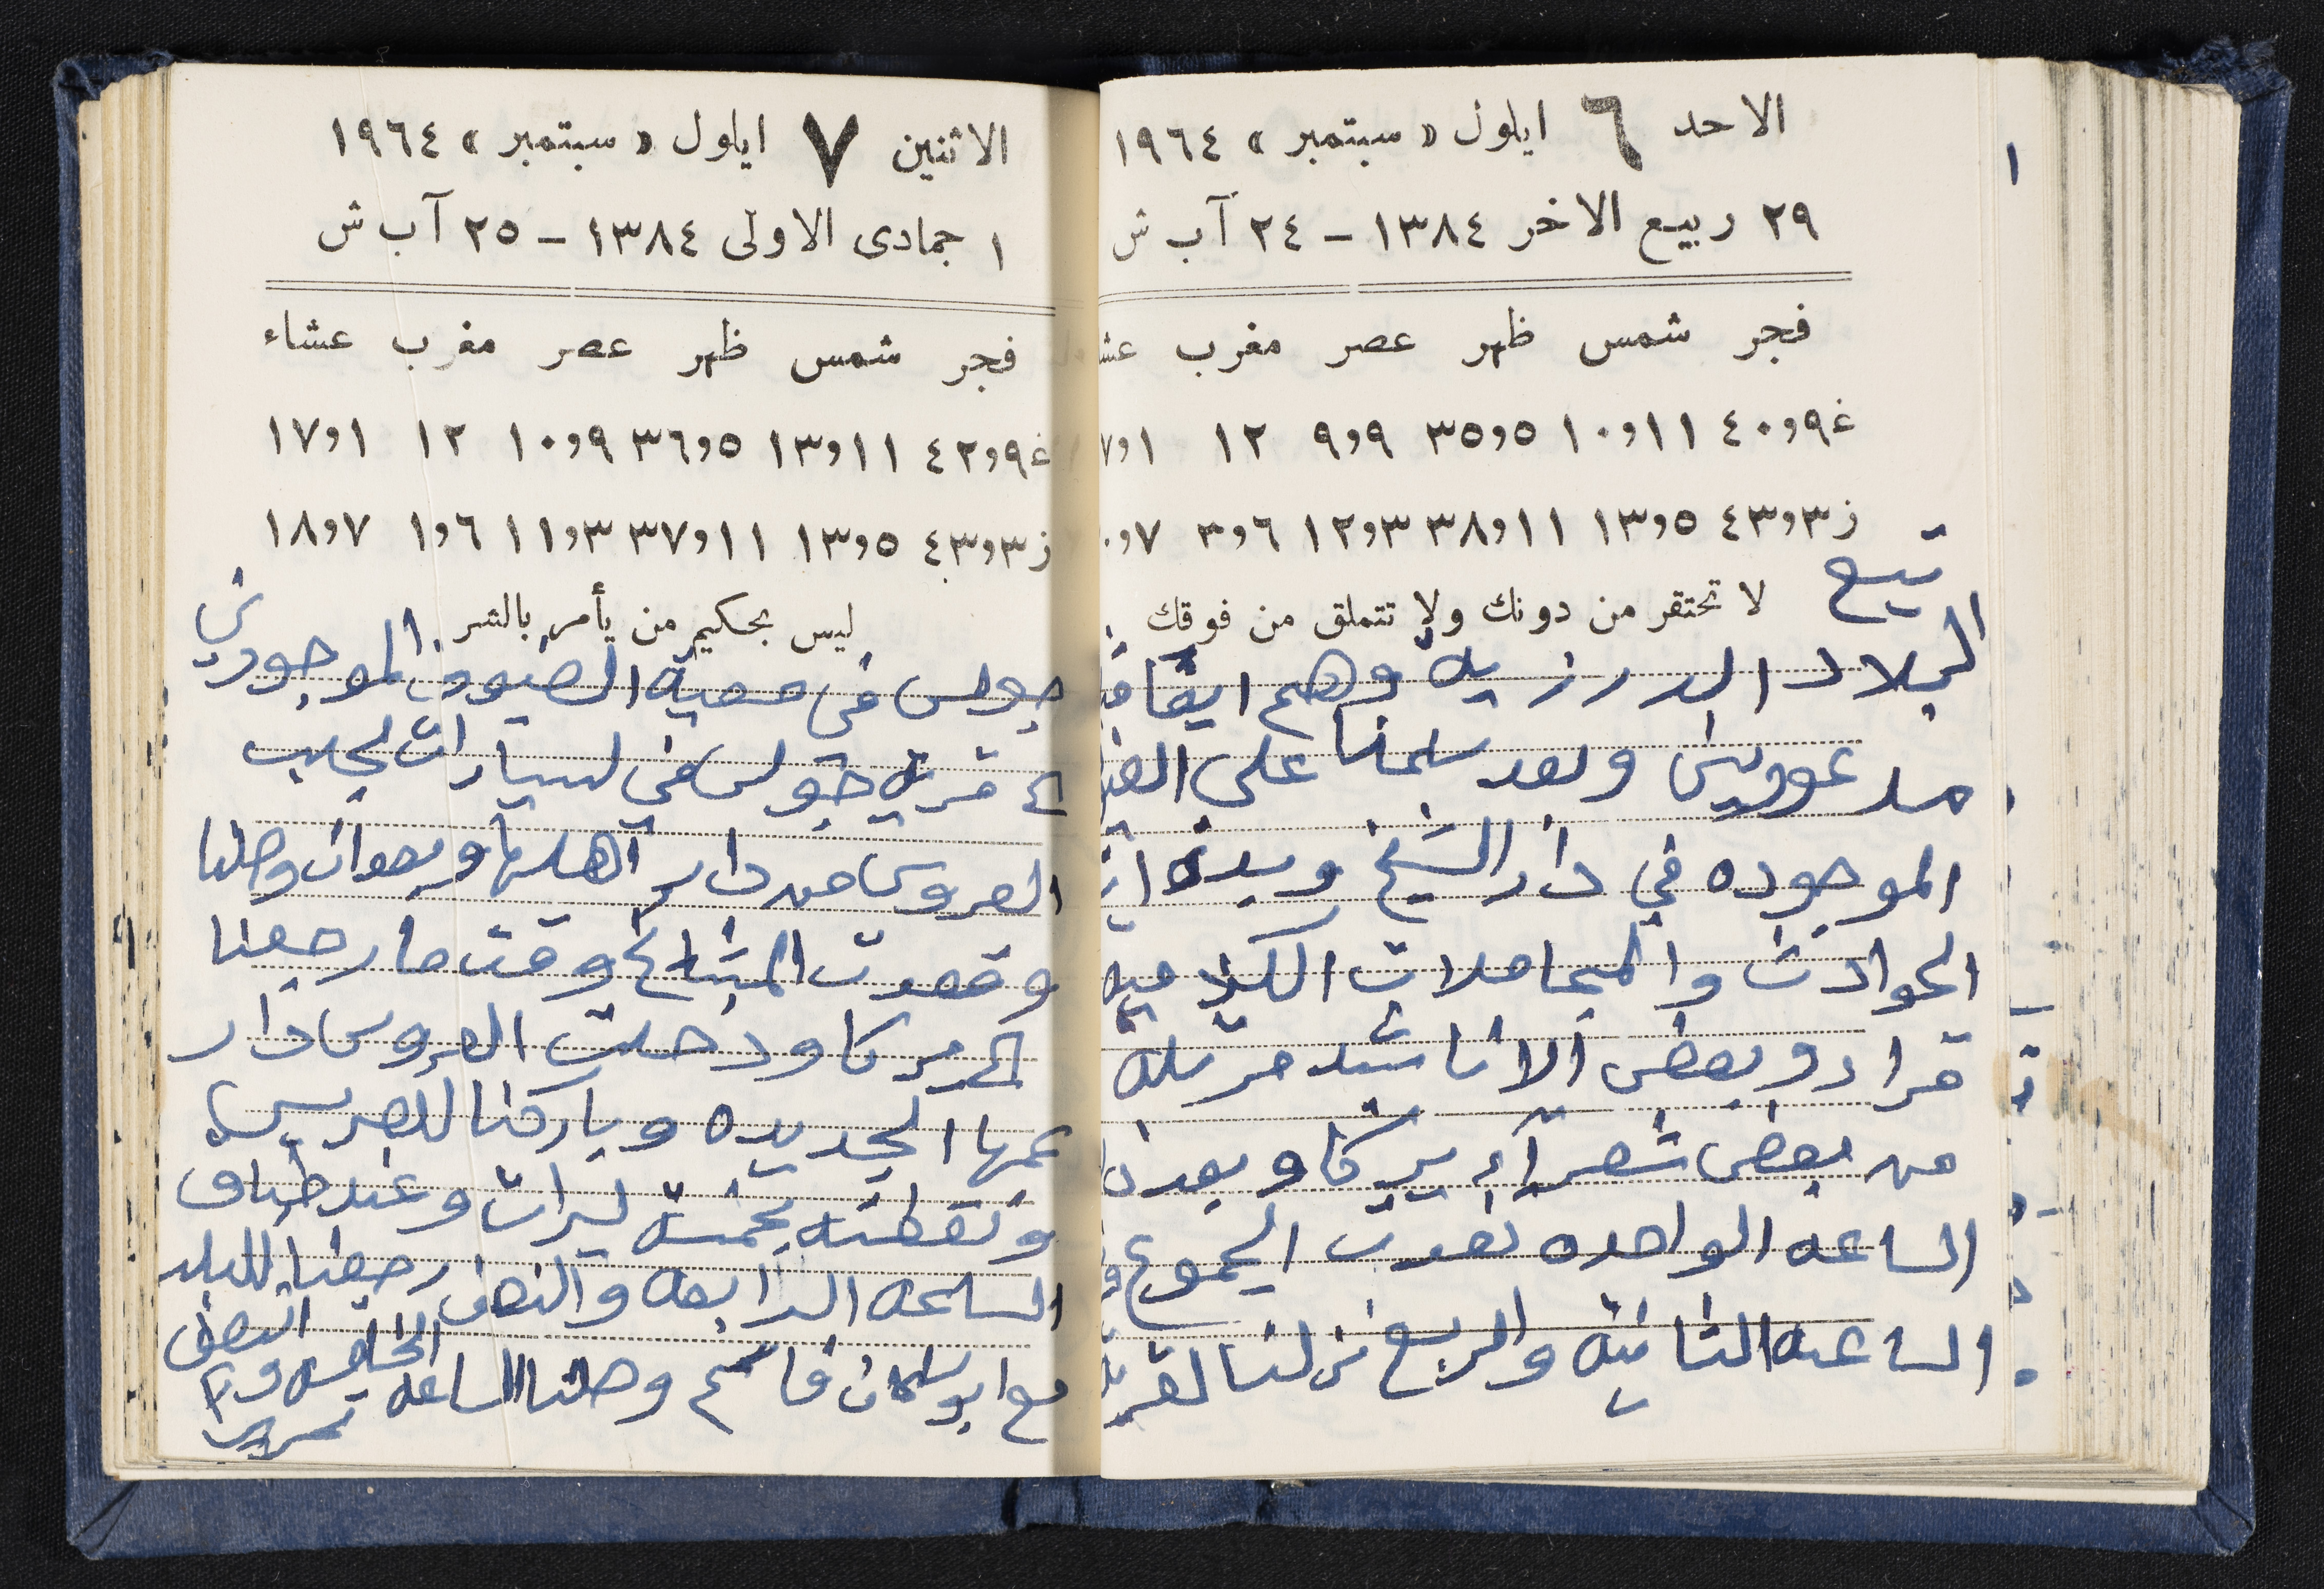 الاحد ٦ ايلول « سبتمبر » ١٩٦٤
٢٩ ربيع الاخر ١٣٨٤ – ٢٤ آب ش
فجر شمس ظهر عصر مغرب عشا
غ ٩و٤٠ ١١و١٠ ٥و٣٥ ٩و٩ ١٢ ١و٧
ز ٣و٤٣ ٥و١٣ ١١و٣٨ ٣و١٢ ٦و٣ ٧و
لا تحتقر من دونك ولا تتملق من فوقك
البلاد الدرزيه وهم ايضا
مدعووين وبعد سلمنا على
الموجوده في دار الشيخ وبدئ
الحوادث والمجاملات الكلاميه
قرادو بعض الاناشيد مرتله
من بعض شعرآء يركا وبعدن
الساعه الواحده تغدت الجموع
الساعه الثانيه والربع نزلنا لقرية
الاثنين ٧ ايلول « سبتمبر » ١٩٦٤
١ جمادى الاولى ١٣٨٤ – ٢٥ آب ش
فجر شمس ظهر عصر مغرب عشاء
غ ٩و٤٢ ١١و١٣ ٥و٣٦ ٩و١٠ ١٢ ١و١٧
ز ٣و٤٣ ٥و١٣ ١١و٣٧ ٣و١١ ٦و١ ٧و١٨
ليس بحكيم من يأمر بالشر
جولس في معية الضيوف الموجودين
الى قرية جولس في لسيارات لجلب
العروس من دار اهلها وبعدان وصلنا
وقعدت المشائخ وقت ما رجعنا
الى يركا ودخلت العروس دار
عمها الجديده وباركنا للعريس
ونقطته بخمسة ليرات وعند
الساعه الرابعه والنصف رجعنا للبلد
مع ابو سلمان قاسم وصلنا الساعه الخامسه والنصف